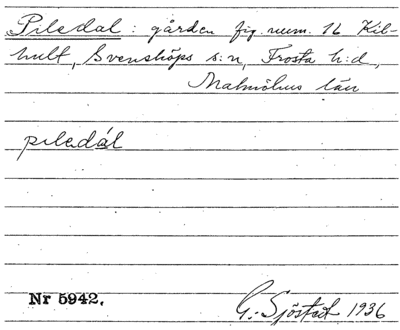 Piledal : gården fig. num. 16 Kil-
hult, Svensköps s:n, Frosta h:d,
Malmöhus län
piladál
Nr 5942.
G. Sjöstedt 1936